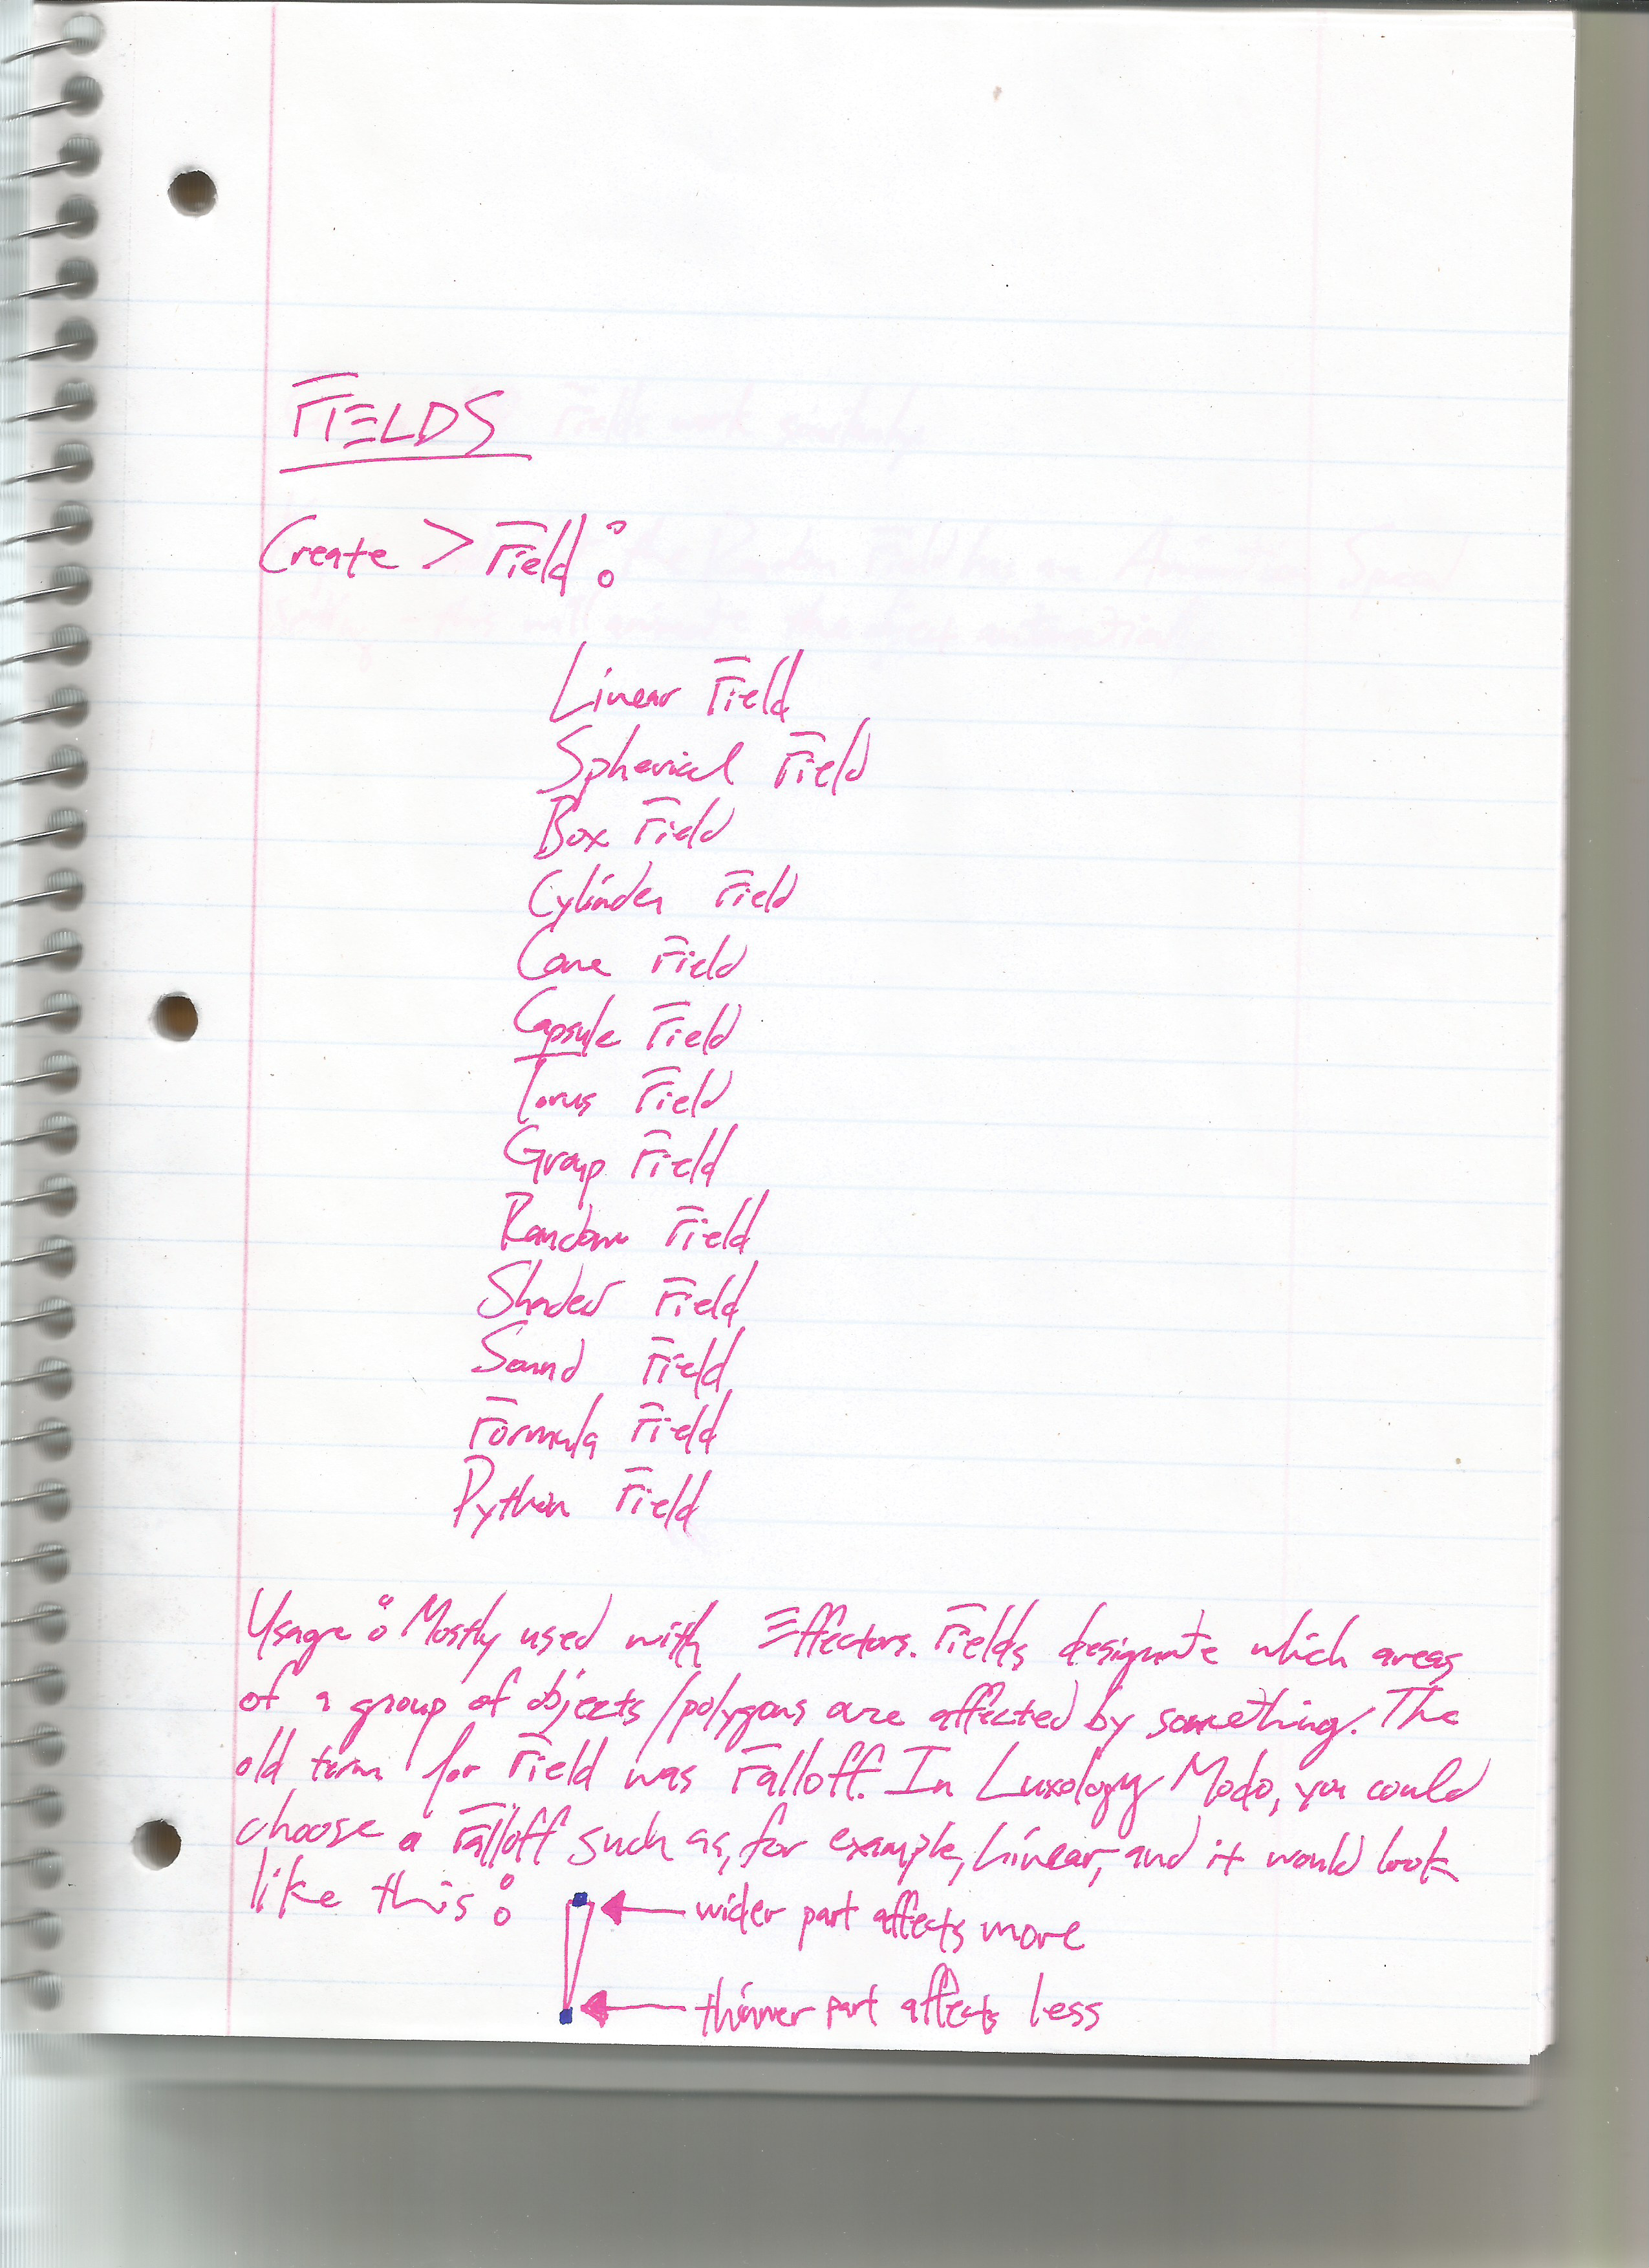 FIELDS
Create > Field:
Linear Field
Spherical Field
Box Field
Cylinder Field
Cone Field
Capsule Field
Torus Field
Group Field
Random Field
Shader Field
Sound Field
Formula Field
Python Field
Usage: Mostly used with Effectors. Fields designate which areas
of a group of objects/polygons are affected by something. The
old term for Field was Falloff. In Luxology Modo, you could
choose a Falloff such as, for example, Linear, and it would look
like this:
wider part affects more
thinner part affects less